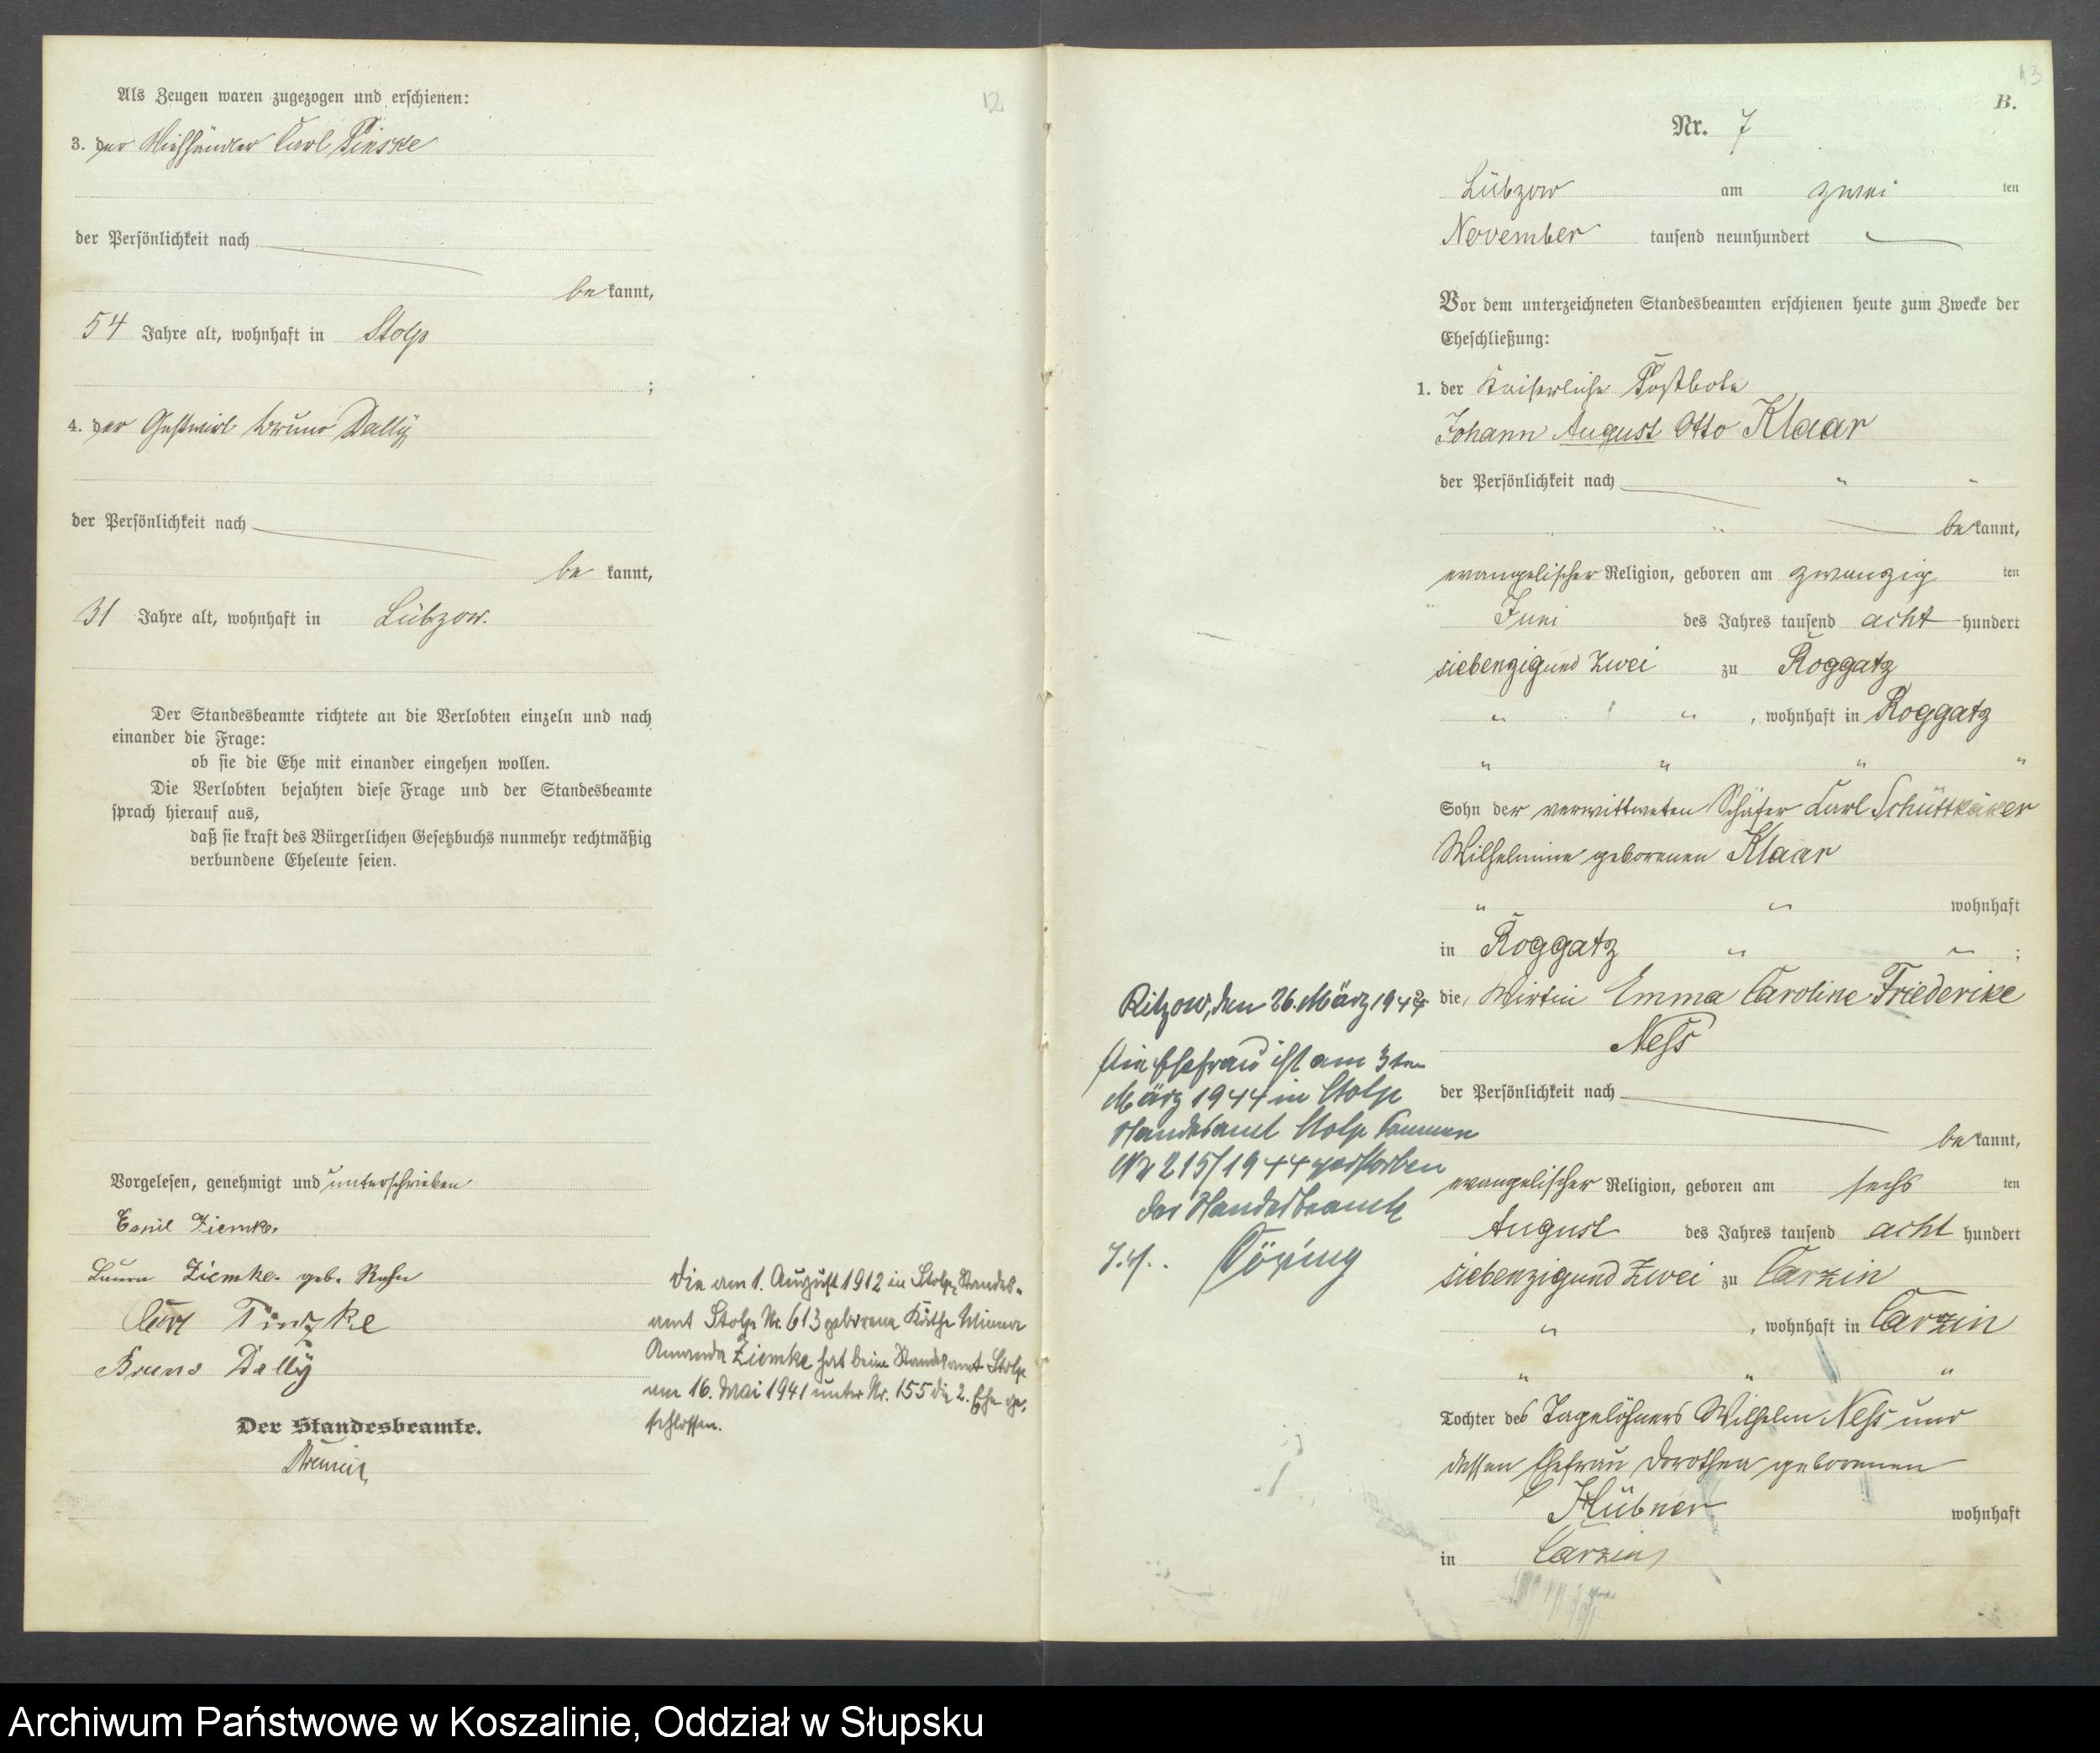 Als Zeugen waren zugezogen und erschienen:
3. der Viehhändler Carl Pinske
der Persönlichkeit nach
be kannt,
54 Jahre alt, wohnhaft in Stolp
;
4. der Gastwirt Bruno Dally
der Persönlichkeit nach
be kannt,
31 Jahre alt, wohnhaft in Lübzow.
Der Standesbeamte richtete an die Verlobten einzeln und nach
einander die Frage:
ob sie die Ehe mit einander eingehen wollen.
Die Verlobten bejahten diese Frage und der Standesbeamte
sprach hierauf aus,
daß sie kraft des Bürgerlichen Gesetzbuchs nunmehr rechtmäßig
verbundene Eheleute seien.
Vorgelesen, genehmigt und unterschrieben
Emil Ziemke.
Ziemke. geb.
Bruno Dally
Der Standesbeamte.
die am 1. August 1912 in Stolp, Standes-
amt Stolp Nr. 613 geborene Käthe Minna
Amanda Ziemke hat beim Standesamt Stolp
am 16. Mai 1941 unter Nr. 155 die 2. Ehe ge-
schlossen.
12
13
B.
Nr. 7
Lübzow am zwei ten
November tausend neunhundert
Vor dem unterzeichneten Standesbeamten erschienen heute zum Zwecke der
Eheschließung:
1. der Kaiserliche Postbote
Johann August Otto Klaar
der Persönlichkeit nach
be kannt,
evangelischer Religion, geboren am zwanzig ten
Juni des Jahres tausend acht hundert
siebenzigund zwei zu Roggatz
, wohnhaft in Roggatz
Sohn der verwittweten Schäfer Carl Schüttkäker
Wilhelmine geborenen Klaar
wohnhaft
in Roggatz ;
die Wirtin Emma Caroline Friederike
Ness
der Persönlichkeit nach
be kannt,
evangelischer Religion, geboren am sechs ten
August des Jahres tausend acht hundert
siebenzigund zwei zu Carzin
, wohnhaft in Carzin
Tochter des Tagelöhners Wilhelm Ness und
dessen Ehefrau Dorothea geborenen
Hübner wohnhaft
in Carzin
Ritzow, den 26. März
Die Ehefrau ist am 3ten
März 1944 in Stolp
Standesamt Stolp Pommern
Nr 215/1944 verstorben
Der Standesbeamte
Archiwum Państwowe w Koszalinie, Oddział w Słupsku